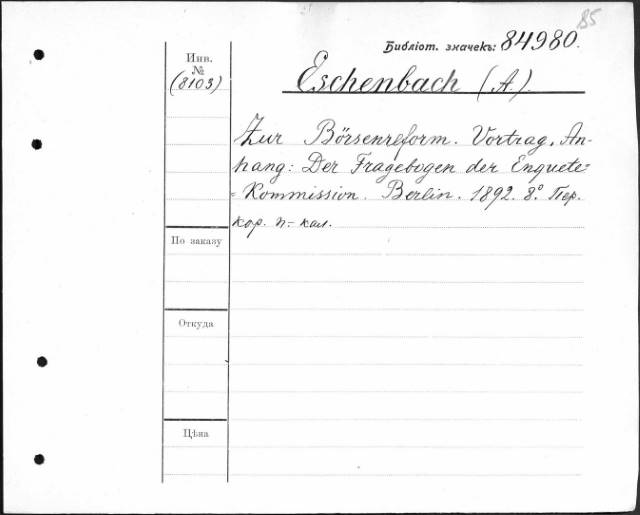 85
Библіот. значекъ: 84980.
Инв.
№
(8103)
Eschenbach (A.).
Zur Börsenreform. Vortrag. An-
hang: Der Fragebogen der Enquete-
-Kommission. Berlin. 1892. 8.° Пер.
кор. п.-кал.
По заказу
Откуда
Цѣна